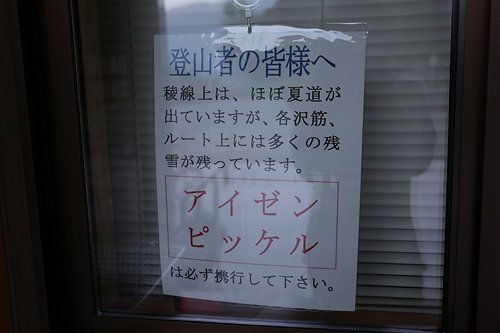 登山者の皆様へ
稜線上は、ほぼ夏道が
出ていますが、各沢筋、
ルート上には多くの残
雪が残っています。
アイゼン
ピッケル
は必ず携行して下さい。